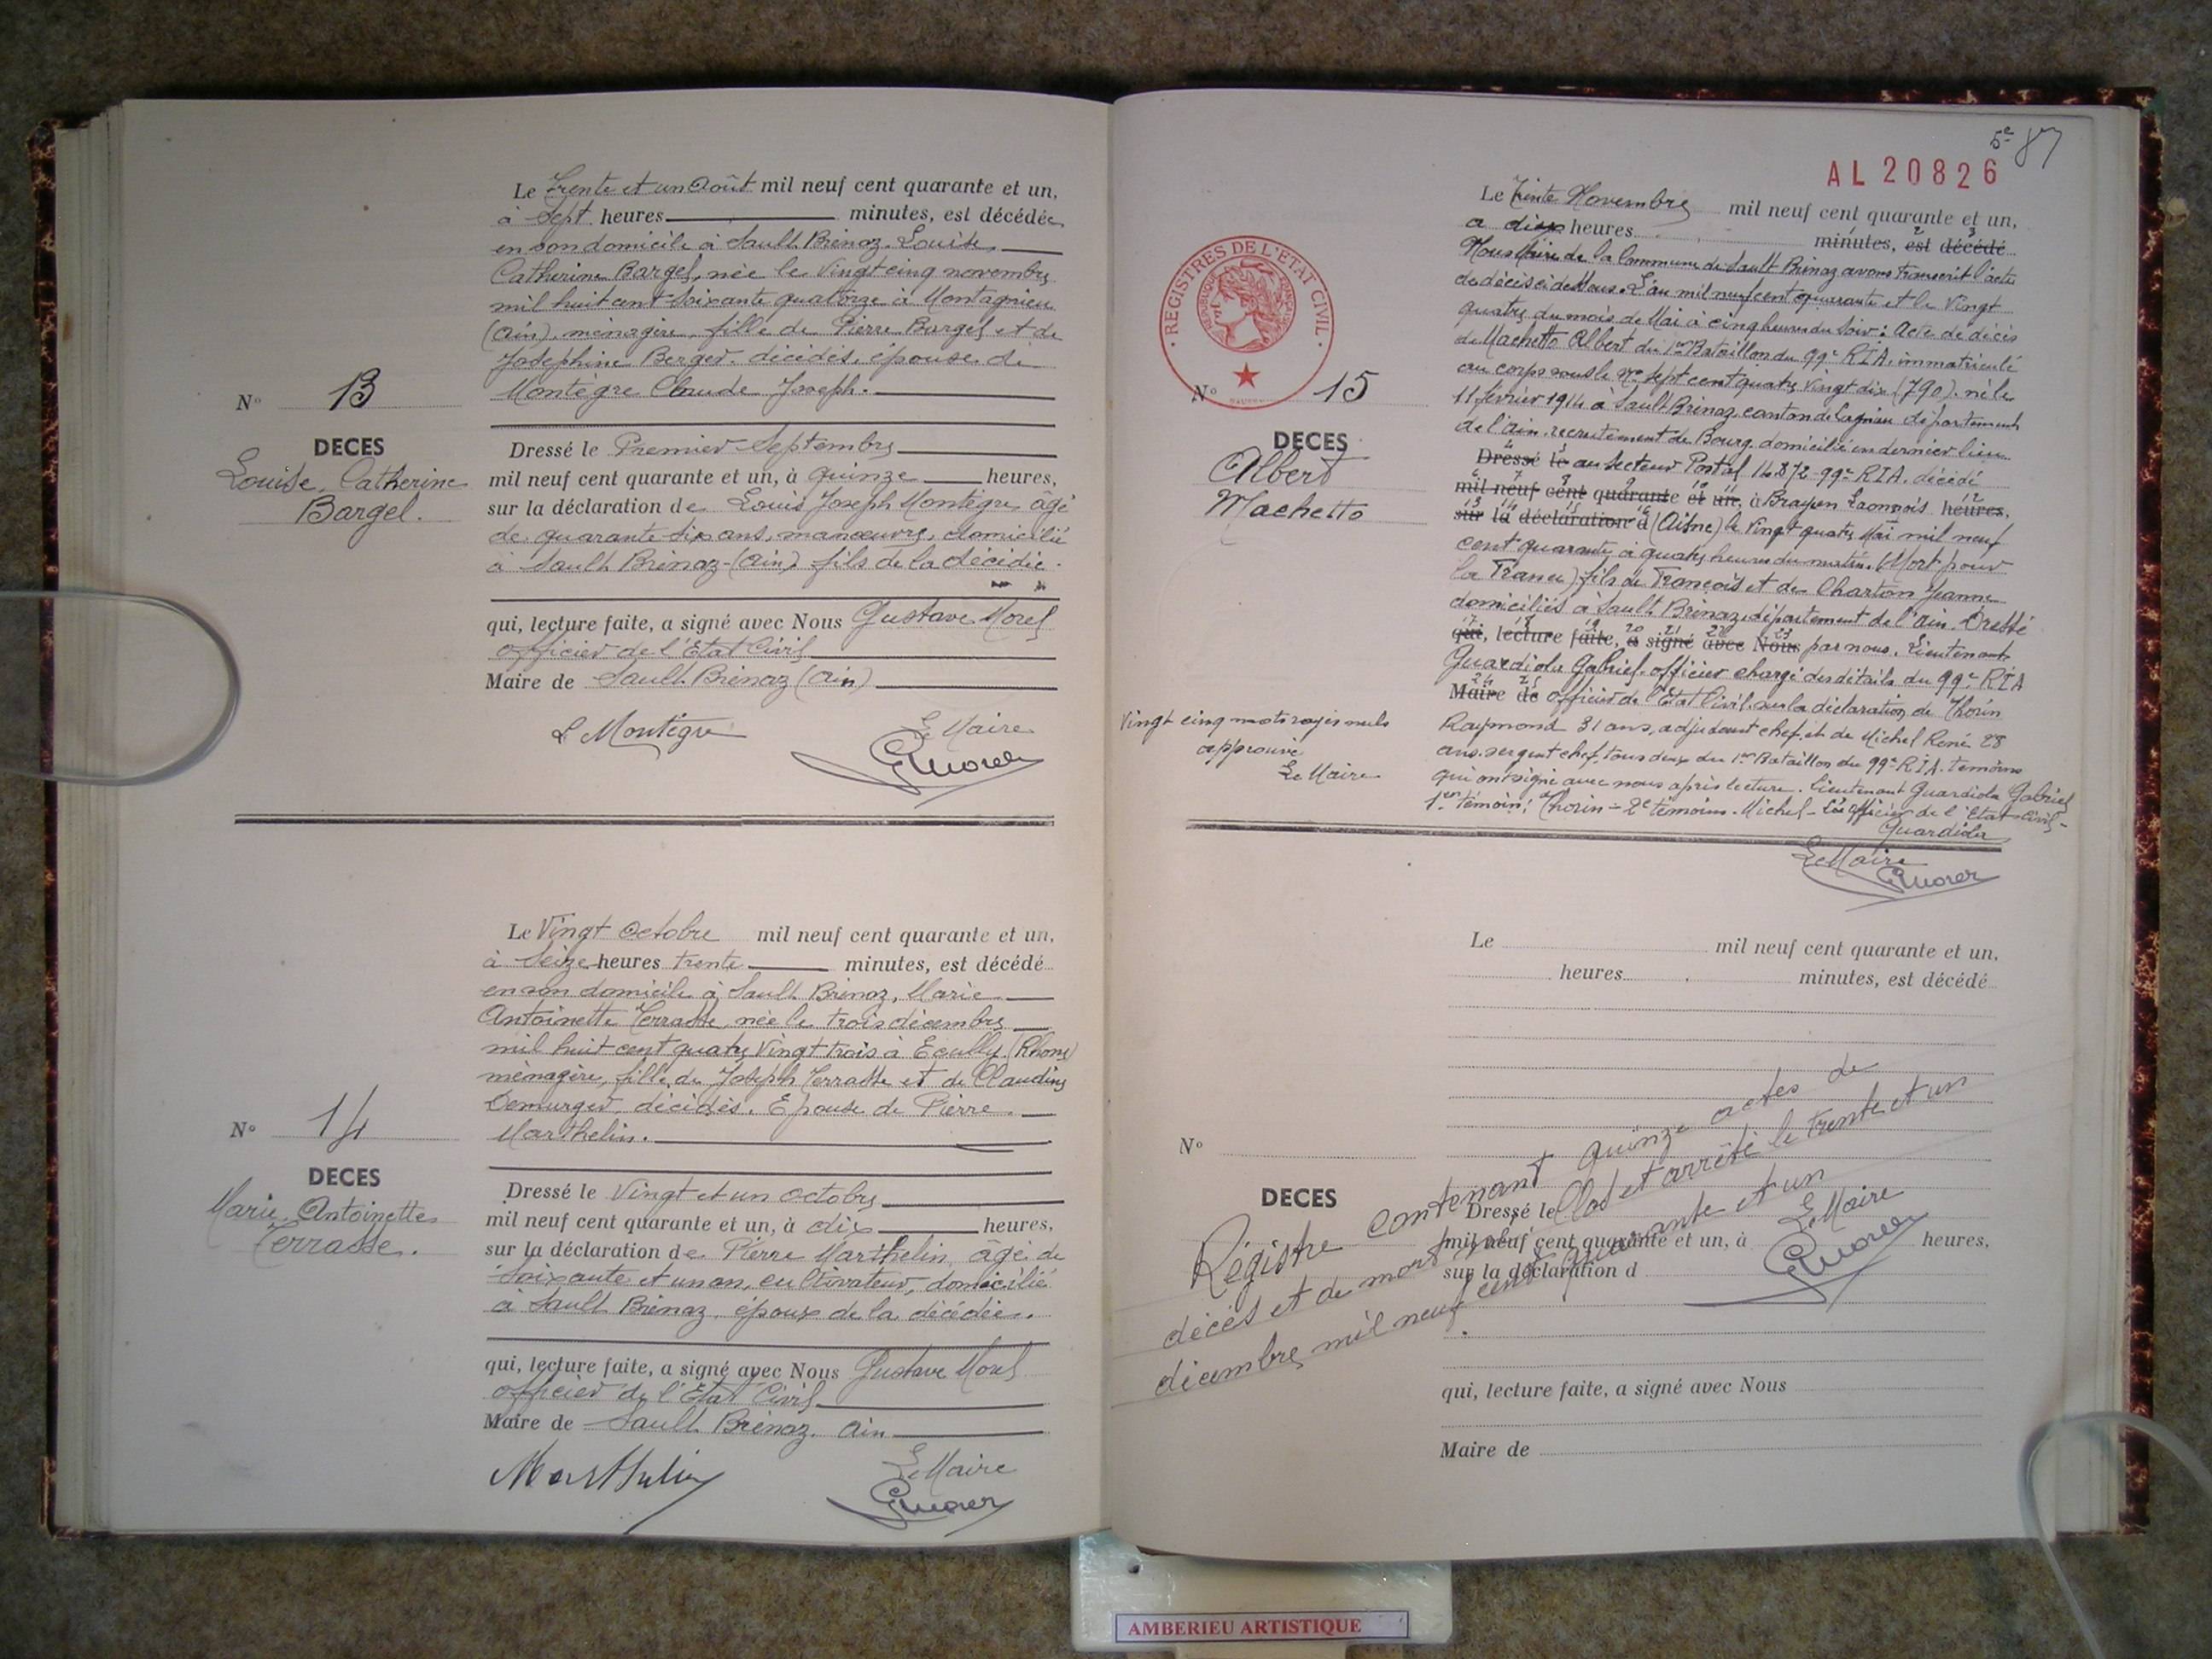 Le Trente et un Août mil neuf cent quarante et un,
à Sept heures minutes, est décédée
en son domicile à Sault Brénaz. Louise
Catherine Bargel, née le Vingt cinq novembre
mil huit cent soixante quatorze à Montagnieu
(Ain), ménagère, fille de Pierre Bargel et de
Joséphine Berger. décédés, épouse de
Montègre Claude Joseph.
N° 13
DECES
Louise, Catherine
Bargel.
Dressé le Premier Septembre
mil neuf cent quarante et un, à quinze heures,
sur la déclaration de Louis Joseph Montègre âgé
de quarante six ans, manœuvre, domicilié
à Sault Brénaz (Ain) fils de la décédée.
qui, lecture faite, a signé avec Nous Gustave Morel
officier de l'Etat Civil
Maire de Sault Brénaz (Ain)
L Montègre
Le Maire
GMorel
Le Vingt Octobre mil neuf cent quarante et un,
à Seize heures trente minutes, est décédé
en son domicile à Sault Brénaz, Marie
Antoinette Terrasse, née le trois décembre
mil huit cent quatre Vingt trois à Ecully (Rhône)
ménagère, fille de Joseph Terrasse et de Claudine
Demurger, décédés. Epouse de Pierre
Marthelin.
N° 14
DECES
Marie, Antoinette
Terrasse.
Dressé le Vingt et un octobre
mil neuf cent quarante et un, à dix heures,
sur la déclaration de Pierre Marthelin, âgé de
soixante et un an, cultivateur, domicilié
à Sault Brénaz, époux de la décédée.
qui, lecture faite, a signé avec Nous Gustave Morel
officier de l'Etat Civil
Maire de Sault Brénaz. Ain
Marthelin
Le Maire
GMorel
5e 87
AL 20826
REGISTRES DE L'ETAT CIVIL
REPUBLIQUE FRANÇAISE
Le trente Novembre mil neuf cent quarante et un,
a dix heures minutes, est décédé
Nous Maire de la Commune de Sault Brénaz avons transcrit l'acte
de décès ci dessous. L'an mil neuf cent quarante et le Vingt
quatre du mois de Mai à cinq heures du soir : Acte de décès
de Machetto Albert du 1er Bataillon du 99e RIA. immatriculé
au corps sous le N° sept cent quatre Vingt dix (790). né le
11 février 1914 à Sault Brénaz canton de Lagnieu département
de l'Ain. recrutement de Bourg. domicilié en dernier lieu
Dressé le au Secteur Postal 14.872-99e RIA. décédé
mil neuf cent quarante et un, à Braye en Laonnois heures,
sur la déclaration d (Aisne) le Vingt quatre Mai mil neuf
cent quarante à quatre heures du matin. (Mort pour
la France) fils de François et de Charton Jeanne
domiciliés à Sault Brénaz, département de l'Ain. Dressé
qui, lecture faite, a signé avec Nous par nous. Lieutenant
Guardiola Gabriel. officier chargé des détails du 99e RIA
Maire de officier de l'Etat Civil. sur la déclaration de Thorin
Raymond 31 ans, adjudant chef. et de Michel René 28
ans. sergent chef. tous deux du 1er Bataillon du 99e RIA. témoins
qui ont signé avec nous après lecture. Lieutenant Guardiola Gabriel
1er témoin : Thorin - 2e témoin. Michel - L'officier de l'Etat-Civil-
Guardiola
Le Maire
GMorel
N° 15
DECES
Albert
Machetto
Vingt cinq mots rayés nuls
approuvé
Le Maire
Le mil neuf cent quarante et un,
heures minutes, est décédé
N°
DECES
Dressé le
mil neuf cent quarante et un, à heures,
sur la déclaration d
qui, lecture faite, a signé avec Nous
Maire de
Régistre contenant quinze actes de
décès et de mort nés, Clos et arrêté le trente et un
décembre mil neuf cent quarante et un
Le Maire
GMorel
AMBERIEU ARTISTIQUE